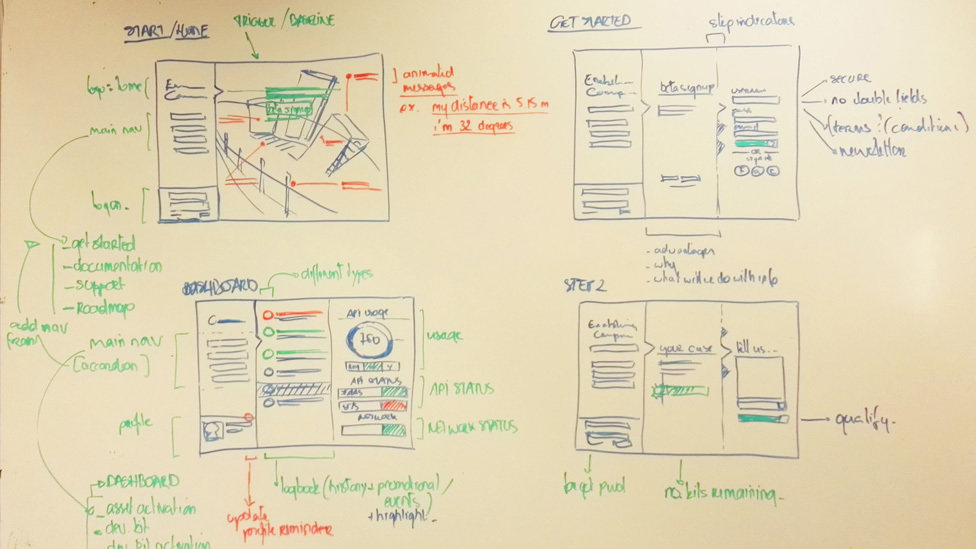 START / HOME
TRIGGER / BASELINE
logo = home
main nav
logon
beta signup
animated
messages
ex. my distance is 5.15 m
i'm 32 degrees
- get started
- documentation
- support
- Roadmap
add nav
(main)
GET STARTED
step indicators
beta signup
email
OR
sign in
secure
no double fields
terms : (conditions)
newsletter
- advantages
- why
- what will we do with info
DASHBOARD
different types
main nav
[accordion]
profile
API USAGE
750
API STATUS
NETWORK
USAGE
API STATUS
NETWORK STATUS
logbook (history + promotional /
events)
+ highlight
update
profile reminder
DASHBOARD
asset activation
dev. kit
dev. kit activation
STEP 2
Enabling
Company
your case
tell us...
qualify
target pwd
no. kits remaining